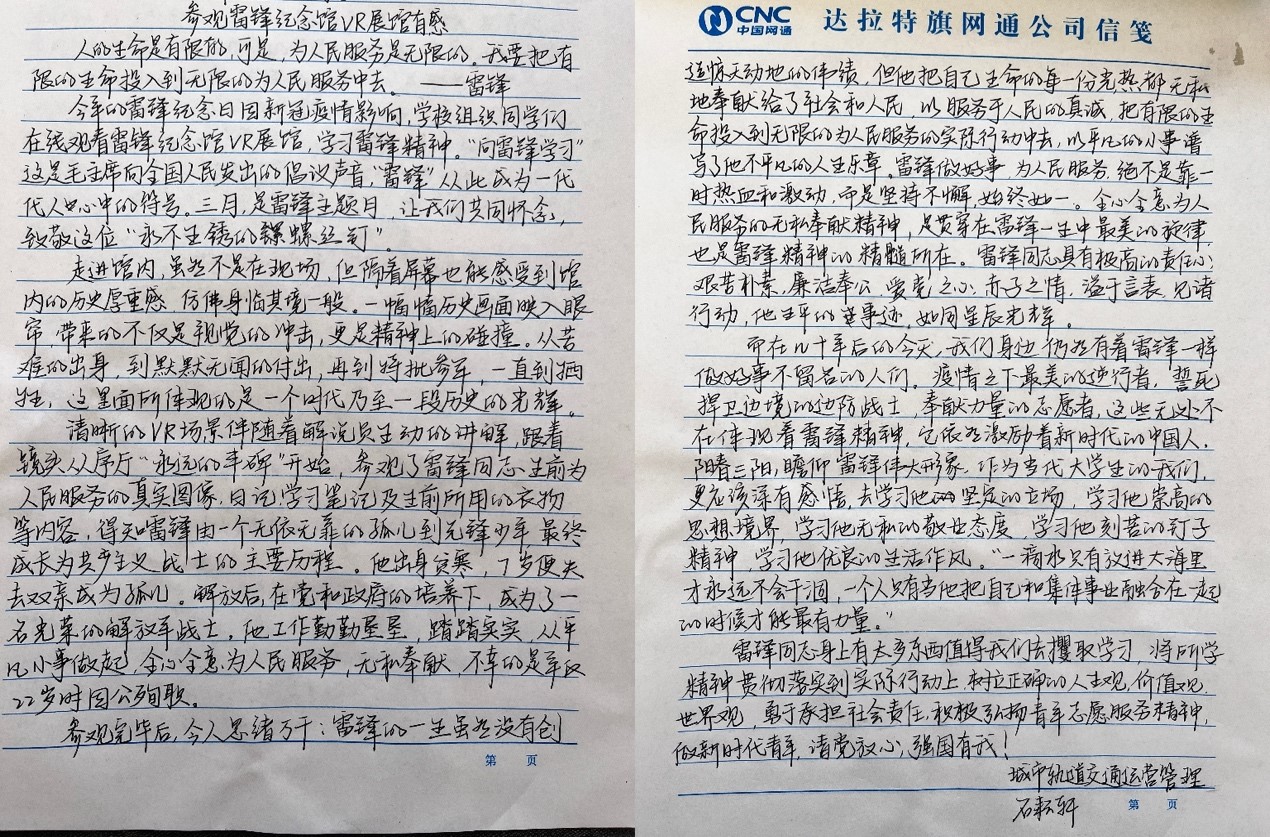 参观雷锋纪念馆VR展馆有感
人的生命是有限的,可是,为人民服务是无限的。我要把有
限的生命投入到无限的为人民服务中去。 ——雷锋
今年的雷锋纪念日因新冠疫情影响,学校组织同学们
在线观看雷锋纪念馆VR展馆,学习雷锋精神。“向雷锋学习”
这是毛主席向全国人民发出的倡议声音,“雷锋”从此成为一代
代人心中的符号。三月,是雷锋主题月,让我们共同怀念,
致敬这位“永不生锈的螺丝钉”。
走进馆内,虽然不是在现场,但隔着屏幕也能感受到馆
内的历史厚重感,仿佛身临其境一般。一幅幅历史画面映入眼
帘,带来的不仅是视觉的冲击,更是精神上的碰撞。从苦
难的出身,到默默无闻的付出,再到特批参军,一直到牺
牲,这里面所体现的是一个时代乃至一段历史的光辉。
清晰的VR场景伴随着解说员生动的讲解,跟着
镜头从序厅“永远的丰碑”开始,参观了雷锋同志生前为
人民服务的真实图像,日记,学习笔记及生前所用的衣物
等内容,得知雷锋由一个无依无靠的孤儿到先锋少年最终
成长为共产主义战士的主要历程。他出身贫寒,7岁便失
去双亲成为孤儿。解放后,在党和政府的培养下,成为了一
名光荣的解放军战士,他工作勤勤垦垦,踏踏实实,从平
凡小事做起,全心全意为人民服务,无私奉献,不幸的是年仅
22岁时因公殉职。
参观完毕后,令人思绪万千:雷锋的一生虽然没有创
第 页
CNC
中国网通
达拉特旗网通公司信笺
造惊天动地的伟绩,但他把自己生命的每一份光热都无私
地奉献给了社会和人民,以服务于人民的真诚,把有限的生
命投入到无限的为人民服务的实际行动中去,以平凡的小事谱
写了他不平凡的人生乐章。雷锋做好事,为人民服务,绝不是靠一
时热血和激动,而是坚持不懈,始终如一。全心全意为人
民服务的无私奉献精神,是贯穿在雷锋一生中最美的旋律,
也是雷锋精神的精髓所在。雷锋同志具有极高的责任心,
艰苦朴素,廉洁奉公,爱党之心,赤子之情,溢于言表,见诸
行动,他生平的事迹,如同星辰光辉。
而在几十年后的今天,我们身边仍然有着雷锋一样
做好事不留名的人们。疫情之下最美的逆行者,誓死
捍卫边境的边防战士,奉献力量的志愿者,这些无处不
在体现着雷锋精神,它依然激励着新时代的中国人。
阳春三阳,瞻仰雷锋伟大形象,作为当代大学生的我们,
更应该深有感悟,去学习他坚定的立场,学习他崇高的
思想境界,学习他无私的敬业态度,学习他刻苦的钉子
精神,学习他优良的生活作风。“一滴水只有放进大海里
才永远不会干涸,一个人只有当他把自己和集体事业融合在一起
的时候才能最有力量。”
雷锋同志身上有太多东西值得我们去攫取学习,将所学
精神贯彻落实到实际行动上,树立正确的人生观,价值观,
世界观,勇于承担社会责任,积极弘扬青年志愿服务精神,
做新时代青年,请党放心,强国有我!
城市轨道交通运营管理
石耘轩
第 页